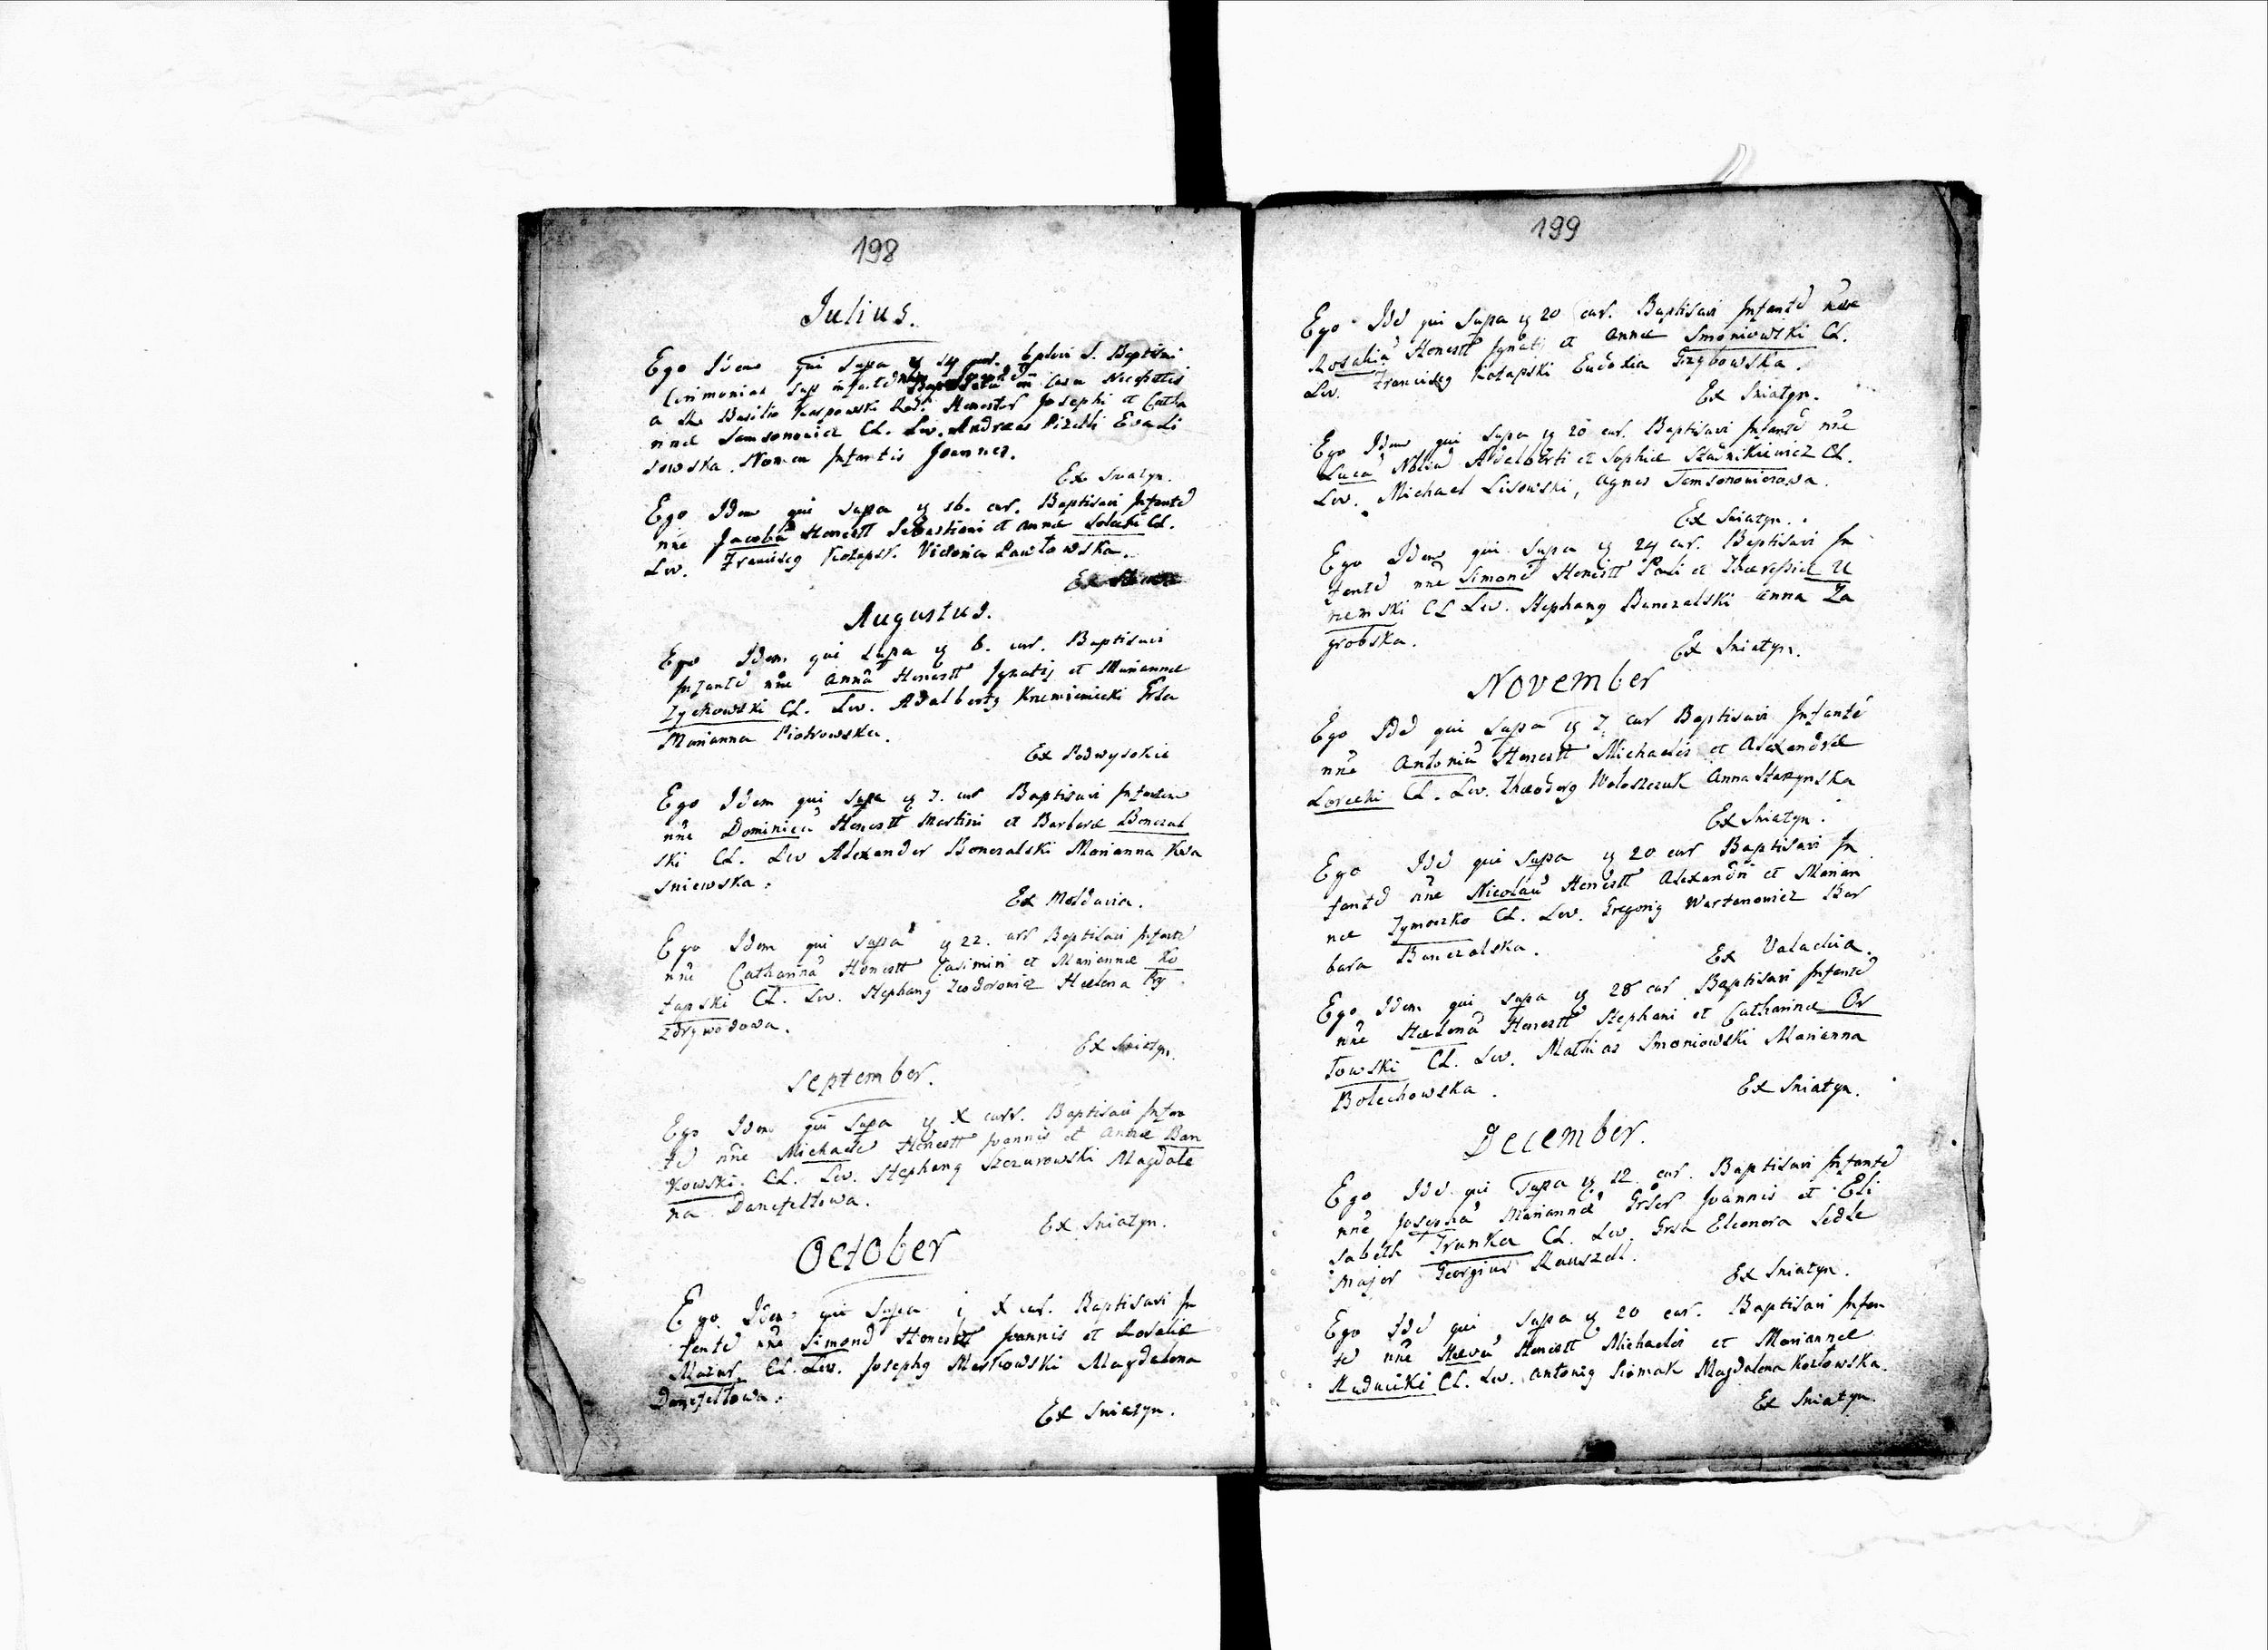 198
Julius.
Ego Idem qui supa 14 Baptisavi
Cerimonias Baptisatũ in casu Necessitis
a Basilio Karpowski Honestor Josephi et Catha
rinæ Samsonowicz CL. Lev. Andreas Eva Li
sowska. Nomen Infantis Joannes.
Ex Sniatyn.
Ego Idem qui supa 16. cur. Baptisavi Infante
nñe Jacobũ Honestt Sebastiani et Annæ CL.
Lev. Franciscg Victoria Pawłowska.
Augustus.
Ego Idem qui supa 6. cur. Baptisavi
Infante nñe Annã Honestt Ignatij et Mariannæ
Zychowski CL. Lev. Adalbertg Krzemieniecki
Marianna Piotrowska.
Ex Podwysokie
Ego Idem qui supa 7. cur Baptisavi Infantem
nñe Dominicũ Honestt Martini et Barbaræ Bonczal
ski CL. Lev Alexander Bonczalski Marianna Kwa
sniewska.
Ex Moldavia.
Ego Idem qui supa 22. curr Baptisavi Infante
nñe Catharinã Honestt Casimiri et Mariannæ Ko
łapski CL. Lev. Stephang Teodorowicz Helena
Ex Sniatyn.
September.
Ego Idem qui supa X curr. Baptisavi Infan
te nñe Michaele Honestt Joannis et Annæ Ban
kowski. CL. Lev. Stephang Szczurowski Magdale
na Danefeltowa.
Ex Sniatyn.
October
Ego Idem qui supa X cur. Baptisavi In
fante nñe Simone Honestt Joannis et Rosaliæ
Mazur. CL. Lev. Josephg Markowski Magdalena
Danefeltowa.
Ex Sniatyn.
199
Ego Ide qui supa 20 cur. Baptisavi Infante nñe
Rosaliã Honestt Ignatij et Annæ Smoniowski CL.
Lev. Franciscg Kołapski Eudoxia Grzybowska.
Ex Sniatyn.
Ego Idem qui supa 20 cur. Baptisavi Infante nñe
Lucã Adalberti et Sophiæ CL.
Lev. Michael Lisowski, Agnes Samsonowiczowa.
Ex Sniatyn.
Ego Idem qui supa 24 cur. Baptisavi In
fante nñe Simone Honestt Pauli et Theressiæ U
niemski CL Lev. Stephang Bonczalski Anna Za
grobska.
Ex Sniatyn.
November
Ego Ide qui supa 7 cur Baptisavi Infante
nñe Antoniũ Honestt Michaelis et Alexandræ
CL. Lev. Theodorg Wołoszczuk Anna Starzynska
Ex Sniatyn.
Ego Ide qui supa 20 cur Baptisavi In
fante nñe Nicolaũ Honestt Alexandri et Marian
næ Tymoszko CL. Lev. Gregorig Wartanowicz Bar
bara Bonczalska.
Ex Valachia.
Ego Idem qui supa 28 cur Baptisavi Infante
nñe Helenã Honestt Stephani et Catharinæ Or
łowski CL. Lev. Mathias Smoniowski Marianna
Bolechowska.
Ex Sniatyn.
December.
Ego Ide qui supa 12. cur. Baptisavi Infante
nñe Josephã Mariannã Joannis et Eli
sabeth Franka CL. Lev. Eleonora Sedle
major Georgius
Ex Sniatyn.
Ego Ide qui supa 20 cur. Baptisavi Infan
te nñe Hevã Honestt Michaelis et Mariannæ
Rudnicki CL. Lev. Antonig Siomak Magdalena Kozłowska.
Ex Sniatyn.